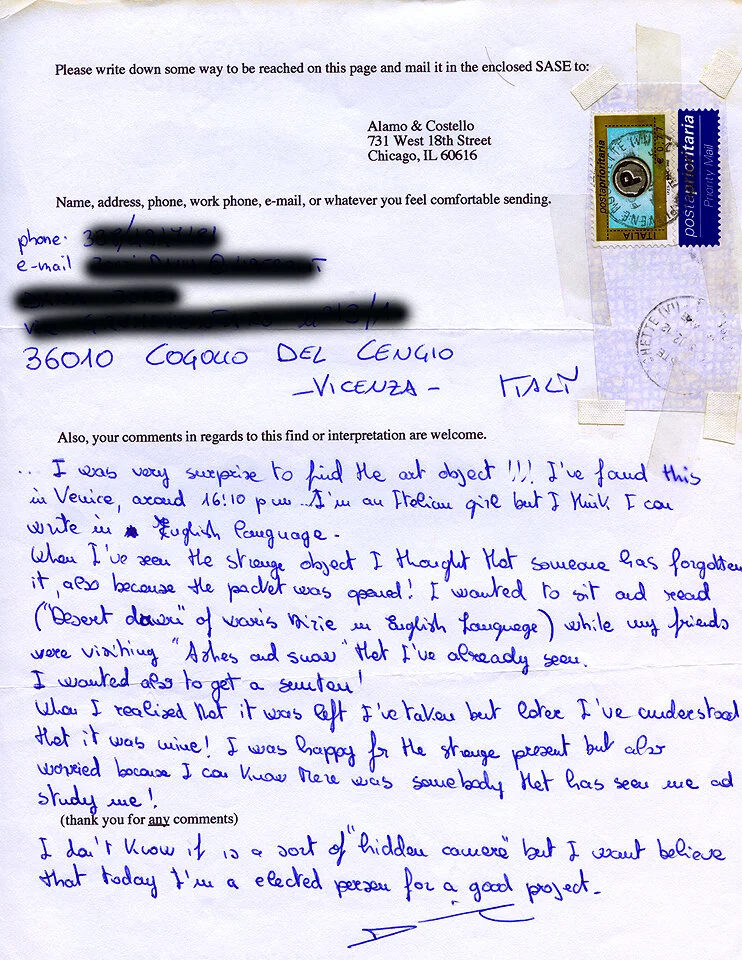 Please write down some way to be reached on this page and mail it in the enclosed SASE to:
Alamo & Costello
731 West 18th Street
Chicago, IL 60616
postaprioritaria
ITALIA
P
postaprioritaria
Priority Mail
Name, address, phone, work phone, e-mail, or whatever you feel comfortable sending.
phone:
e-mail
36010 COGOLLO DEL CENGIO
- VICENZA - ITALY
Also, your comments in regards to this find or interpretation are welcome.
... I was very surprise to find the art object !!! I've found this
in Venice, around 16:10 p.m... I'm an Italian girl but I think I can
write in English language.
When I've seen the strange object I thought that someone has forgotten
it, also because the packet was opened! I wanted to sit and read
("Desert dawn" of Waris Dirie in English Language) while my friends
were visiting "Ashes and snow" that I've already seen.
I wanted also to get a suntan!
When I realised that it was left I've taken but later I've understood
that it was mine! I was happy for the strange present but also
worried because I can know there was somebody that has seen me ad
study me!
(thank you for any comments)
I don't know if is a sort of "hidden camera" but I want believe
that today I'm a elected person for a good project.